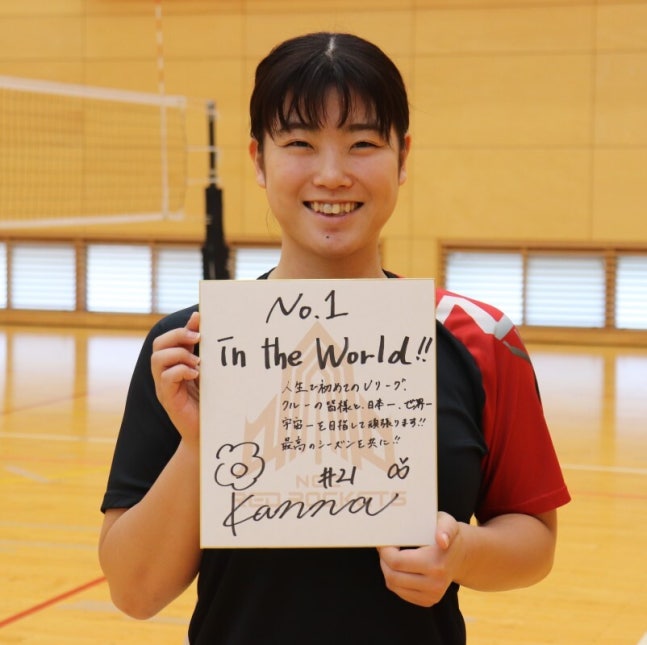 No.1
in the World!!
人生で初めてのVリーグ。
クルーの皆様と、日本一、世界一
宇宙一を目指して頑張ります!!
最高のシーズンを共に!!
#21
Kanna
NEC
RED ROCKETS